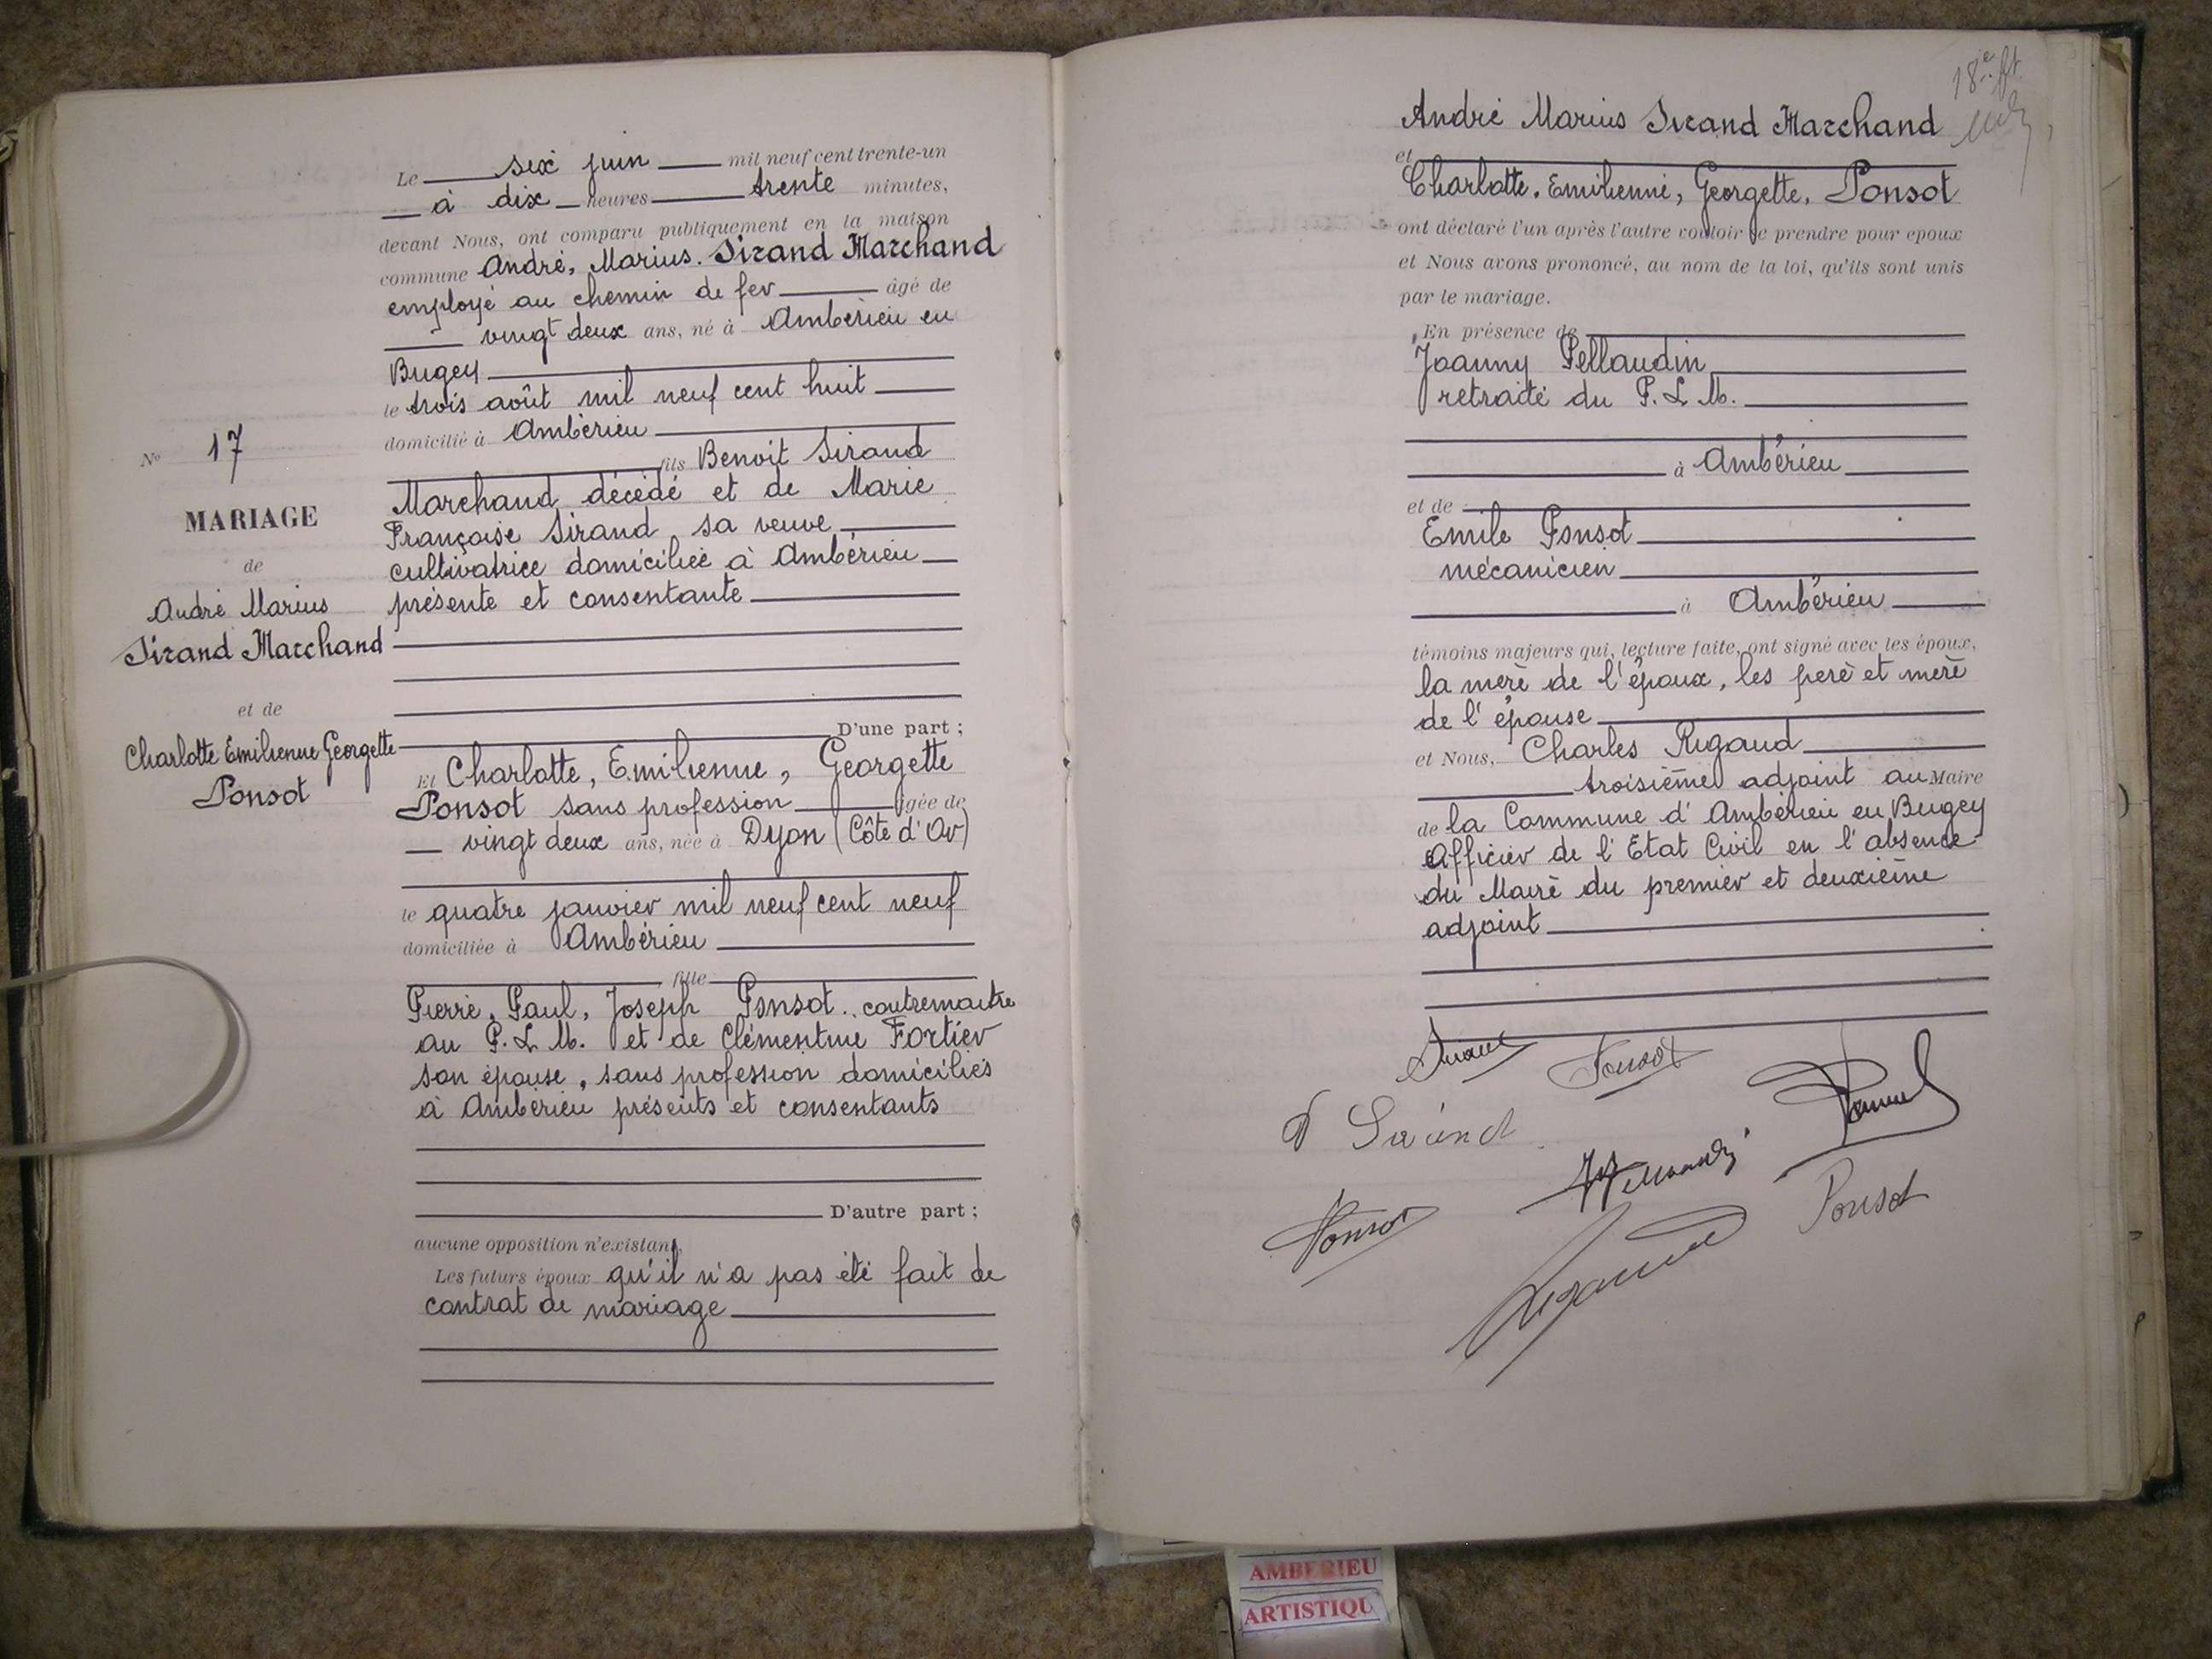 Le six juin mil neuf cent trente-un
à dix heures trente minutes,
devant Nous, ont comparu publiquement en la maison
commune André, Marius. Sirand Marchand
employé au chemin de fer âgé de
vingt deux ans, né à Ambérieu en
Bugey
le trois août mil neuf cent huit
domicilié à Ambérieu
fils Benoit Sirand
Marchand décédé et de Marie
Françoise Sirand sa veuve
cultivatrice domiciliée à Ambérieu
présente et consentante
D'une part ;
N° 17
MARIAGE
de
André Marius
Sirand Marchand
et de
Charlotte Emilienne Georgette
Ponsot
Et Charlotte, Emilienne, Georgette
Ponsot sans profession âgée de
vingt deux ans, née à Dyon (Côte d'Or)
le quatre janvier mil neuf cent neuf
domiciliée à Ambérieu
fille
Pierre, Paul, Joseph Ponsot, contremaitre
au P. L. M. et de Clémentine Fortier
son épouse, sans profession domiciliés
à Ambérieu présents et consentants
D'autre part ;
aucune opposition n'existant,
Les futurs époux qu'il n'a pas été fait de
contrat de mariage
18e
André Marius Sirand Marchand
et
Charlotte, Emilienne, Georgette, Ponsot
ont déclaré l'un après l'autre vouloir se prendre pour epoux
et Nous avons prononcé, au nom de la loi, qu'ils sont unis
par le mariage.
En présence de
Joanny Pellaudin
retraité du P. L. M.
à Ambérieu
et de
Emile Ponsot
mécanicien
à Ambérieu
témoins majeurs qui, lecture faite, ont signé avec les époux,
la mère de l'époux, les père et mère
de l'épouse
et Nous, Charles Rigaud
troisième adjoint au Maire
de la Commune d'Ambérieu en Bugey
Officier de l'Etat Civil en l'absence
du Maire du premier et deuxième
adjoint
Sirand Ponsot
Ponsot
Ponsot
Rigaud
AMBERIEU
ARTISTIQU